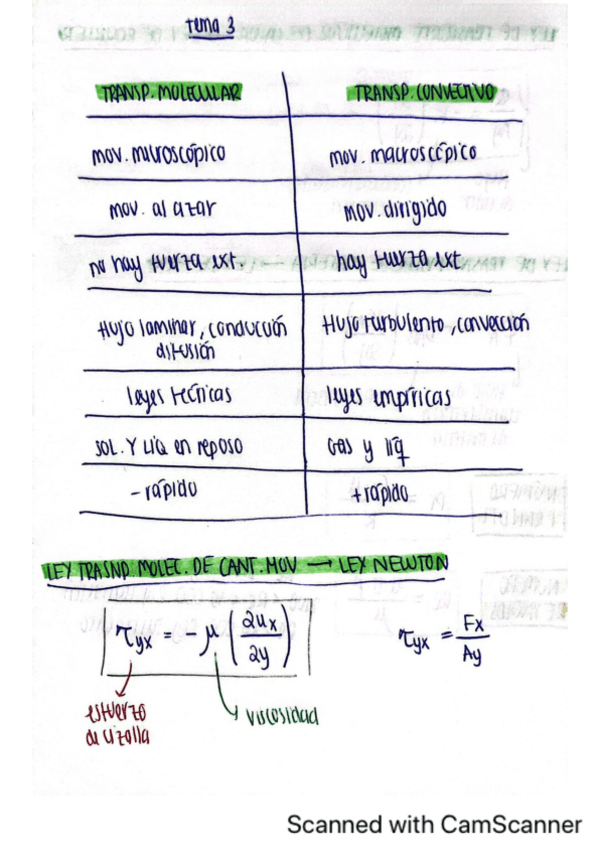 tema 3
TRANSP. MOLECULAR TRANSP. CONVECTIVO
mov. microscópico mov. macroscópico
mov. al azar mov. dirigido
no hay fuerza ext. hay fuerza ext
flujo laminar, conducción flujo turbulento, convección
difusión
leyes teóricas leyes empíricas
SOL. Y LIQ en reposo Gas y líq
- rápido + rápido
LEY TRASNP. MOLEC. DE CANT. MOV → LEY NEWTON
τyx = -μ (∂ux/∂y) τyx = Fx/Ay
esfuerzo viscosidad
de cizalla
Scanned with CamScanner